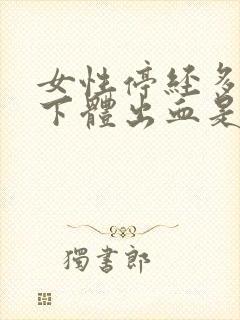 女性停经多
下體出血是
獨書郎